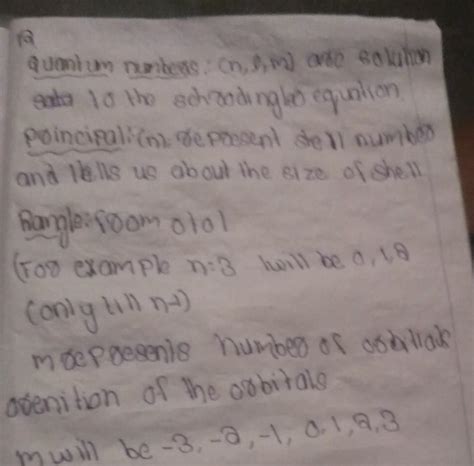 12
quantum numbers: (n, l, m) are solution
to the schroodingles equation.
poincipal: (n). depresent shell number
and tells us about the size of shell
Rangle: from 0 to 1
(For example n=3 l will be 0, 1, 2
(only till n-1)
m represents number of orbitals
orenition of the orbitals
m will be -3, -2, -1, 0, 1, 2, 3